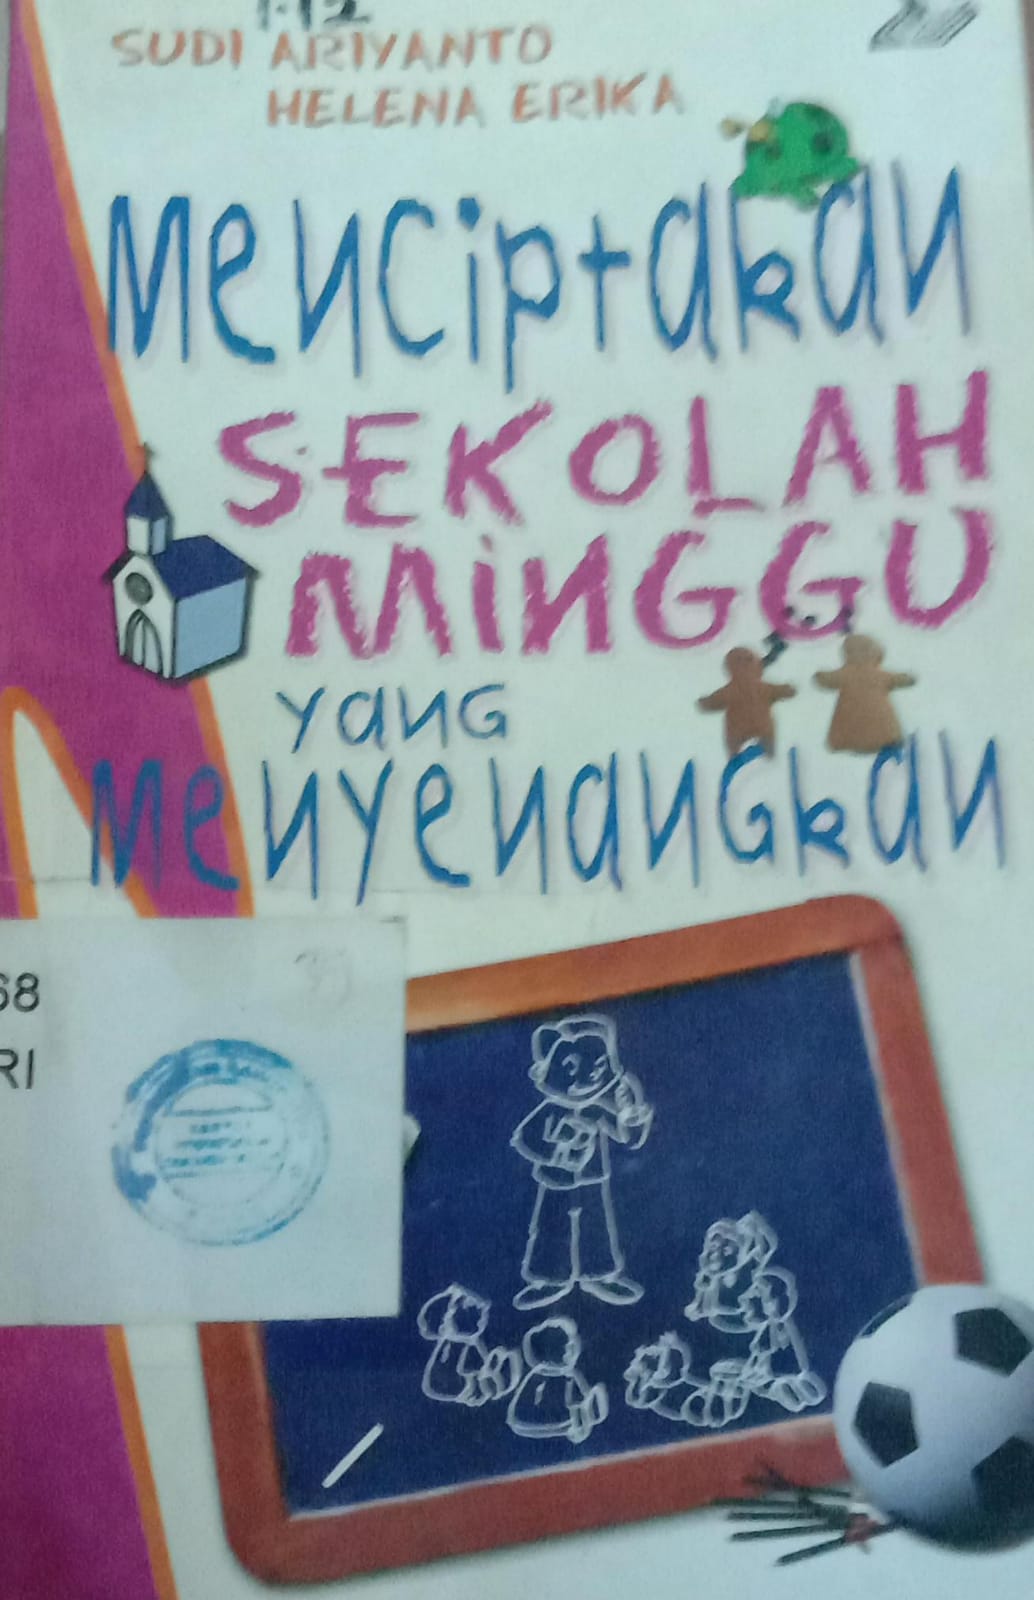 SUDI ARIYANTO
HELENA ERIKA
Menciptakan
SEKOLAH
MINGGU
yang
Menyenangkan
68
RI